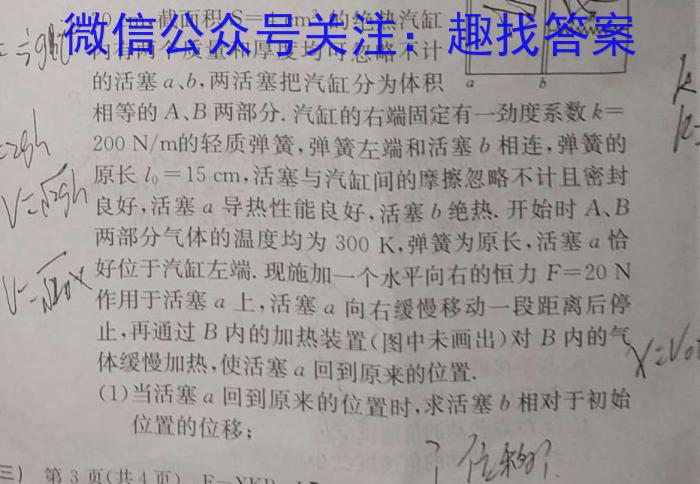 微信公众号关注：趣找答案
截面积 S=
的绝热汽缸
的活塞 a、b,两活塞把汽缸分为体积
a b
相等的 A、B 两部分. 汽缸的右端固定有一劲度系数 k=
200 N/m的轻质弹簧,弹簧左端和活塞 b 相连,弹簧的
原长 l₀=15 cm,活塞与汽缸间的摩擦忽略不计且密封
良好,活塞 a 导热性能良好,活塞 b 绝热. 开始时 A、B
两部分气体的温度均为 300 K,弹簧为原长,活塞 a 恰
好位于汽缸左端. 现施加一个水平向右的恒力 F=20 N
作用于活塞 a 上,活塞 a 向右缓慢移动一段距离后停
止,再通过 B 内的加热装置(图中未画出)对 B 内的气
体缓慢加热,使活塞 a 回到原来的位置.
(1)当活塞 a 回到原来的位置时,求活塞 b 相对于初始
位置的位移;
三) 第 3 页(共 4 页)